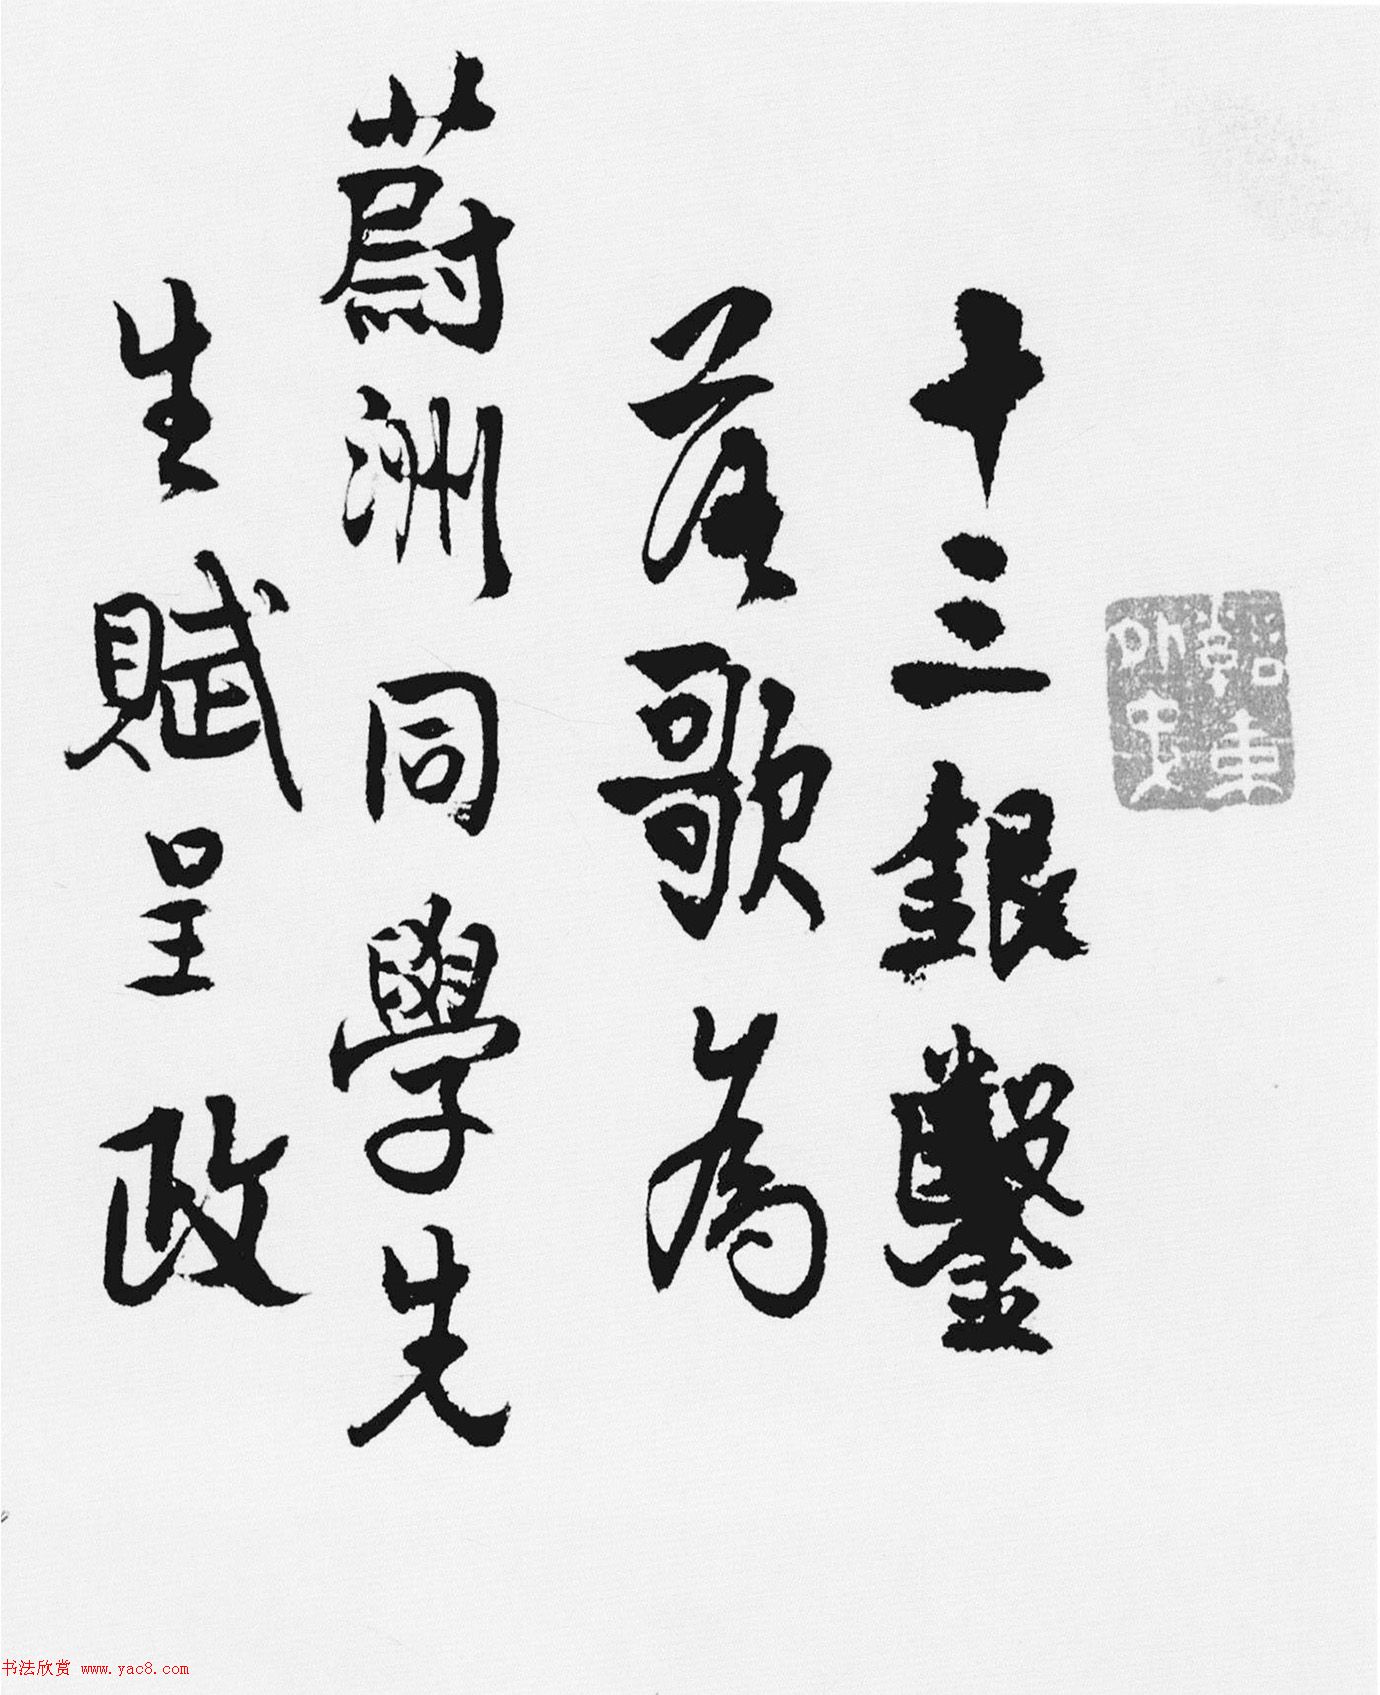 十三銀鑿
落歌為
蔚洲同學先
生賦呈政
书法欣赏 www.yac8.com